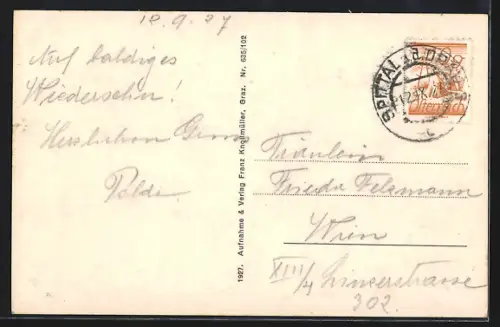 12.9.27
Auf baldiges
Wiedersehn!
Herzlichen Gruss
Polde.
1927. Aufnahme & Verlag Franz Knollmüller, Graz. Nr. 635/102
SPITTAL a.d. DRAU
Österreich
Fräulein
Frieda Felzmann
Wien
XIII/4 Linzerstrasse
302.